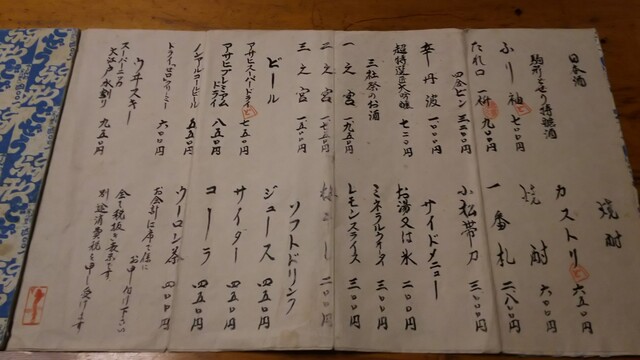 日本酒
駒形どぜう特撰酒
ふり袖 七〇〇円
たれ口 一合 九〇〇円
四合ビン 三二〇〇円
辛丹波 一〇〇〇円
超特選 大吟醸 七二〇円
三社祭のお酒
一之宮 一九五〇円
二之宮 一七五〇円
三之宮 一五〇〇円
ビール
アサヒスーパードライ 七五〇円
アサヒプレミアムドライ 八五〇円
ノンアルコールビール 五五〇円
ドライゼロフリー 六〇〇円
ウヰスキー
スーパーニッカ
大江戸水割り 九五〇円
焼酎
カストリ 六五〇円
焼酎 六〇〇円
一番札 二八〇〇円
小松帯刀 三八〇〇円
サイドメニュー
お湯又は氷 二〇〇円
ミネラルウォーター 三〇〇円
レモンスライス 三〇〇円
梅干し 二〇〇円
ソフトドリンク
ジュース 四五〇円
サイダー 四五〇円
コーラ 四五〇円
ウーロン茶 四〇〇円
お会計は席で係に
お申し付け下さい
全て税抜き表示です
別途消費税を申し受けます